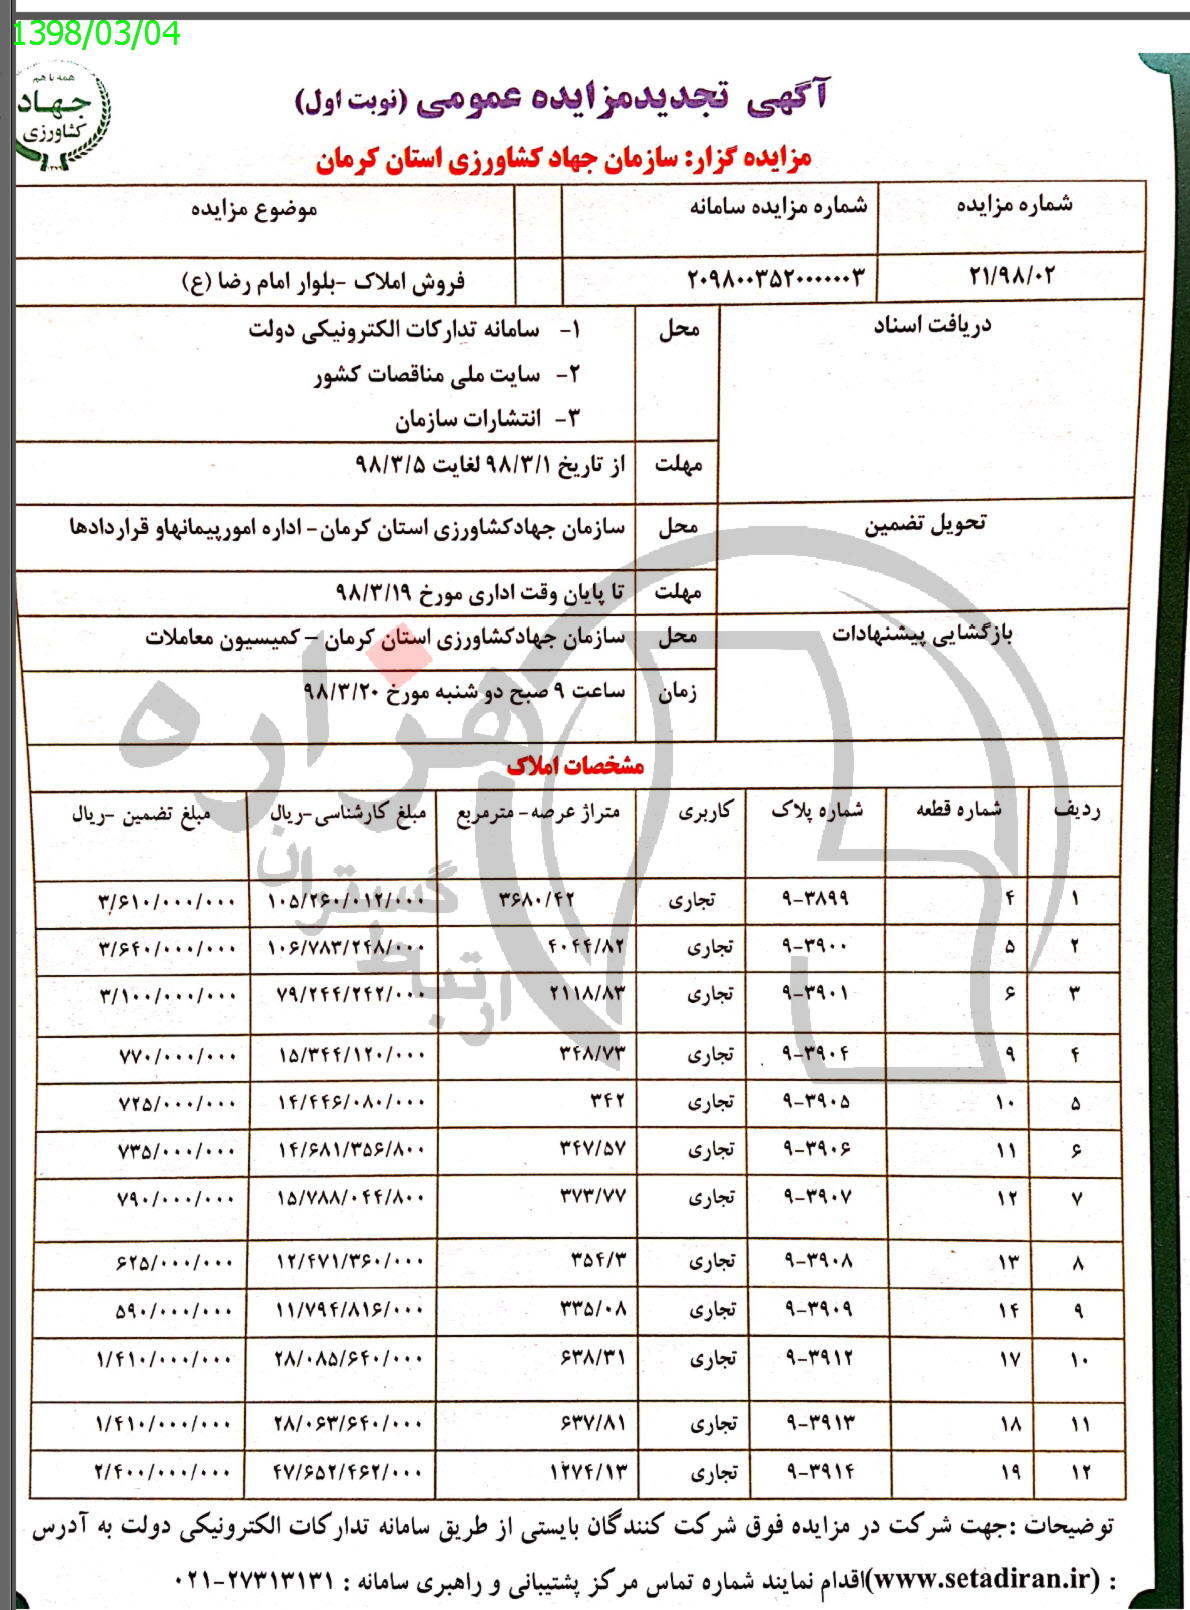 1398/03/04
همه با هم
جهاد
کشاورزی
آگهی تجدیدمزایده عمومی (نوبت اول)
مزایده گزار: سازمان جهاد کشاورزی استان کرمان
شماره مزایده شماره مزایده سامانه موضوع مزایده
۲۱/۹۸/۰۲ ۲۰۹۸۰۰۳۵۲۰۰۰۰۰۰۳ فروش املاک -بلوار امام رضا (ع)
دریافت اسناد محل ۱- سامانه تدارکات الکترونیکی دولت
۲- سایت ملی مناقصات کشور
۳- انتشارات سازمان
مهلت از تاریخ ۹۸/۳/۱ لغایت ۹۸/۳/۵
تحویل تضمین محل سازمان جهادکشاورزی استان کرمان- اداره امورپیمانهاو قراردادها
مهلت تا پایان وقت اداری مورخ ۹۸/۳/۱۹
بازگشایی پیشنهادات محل سازمان جهادکشاورزی استان کرمان - کمیسیون معاملات
زمان ساعت ۹ صبح دو شنبه مورخ ۹۸/۳/۲۰
هزاره
گستران
ارتباط
مشخصات املاک
ردیف شماره قطعه شماره پلاک کاربری متراژ عرصه- مترمربع مبلغ کارشناسی-ریال مبلغ تضمین -ریال
۱ ۴ ۹-۳۸۹۹ تجاری ۳۶۸۰/۴۲ ۱۰۵/۲۶۰/۰۱۲/۰۰۰ ۳/۶۱۰/۰۰۰/۰۰۰
۲ ۵ ۹-۳۹۰۰ تجاری ۴۰۴۴/۸۲ ۱۰۶/۷۸۳/۲۴۸/۰۰۰ ۳/۶۴۰/۰۰۰/۰۰۰
۳ ۶ ۹-۳۹۰۱ تجاری ۲۱۱۸/۸۳ ۷۹/۲۴۴/۲۴۲/۰۰۰ ۳/۱۰۰/۰۰۰/۰۰۰
۴ ۹ ۹-۳۹۰۴ تجاری ۳۴۸/۷۳ ۱۵/۳۴۴/۱۲۰/۰۰۰ ۷۷۰/۰۰۰/۰۰۰
۵ ۱۰ ۹-۳۹۰۵ تجاری ۳۴۲ ۱۴/۴۴۶/۰۸۰/۰۰۰ ۷۲۵/۰۰۰/۰۰۰
۶ ۱۱ ۹-۳۹۰۶ تجاری ۳۴۷/۵۷ ۱۴/۶۸۱/۳۵۶/۸۰۰ ۷۳۵/۰۰۰/۰۰۰
۷ ۱۲ ۹-۳۹۰۷ تجاری ۳۷۳/۷۷ ۱۵/۷۸۸/۰۴۴/۸۰۰ ۷۹۰/۰۰۰/۰۰۰
۸ ۱۳ ۹-۳۹۰۸ تجاری ۳۵۴/۳ ۱۲/۴۷۱/۳۶۰/۰۰۰ ۶۲۵/۰۰۰/۰۰۰
۹ ۱۴ ۹-۳۹۰۹ تجاری ۳۳۵/۰۸ ۱۱/۷۹۴/۸۱۶/۰۰۰ ۵۹۰/۰۰۰/۰۰۰
۱۰ ۱۷ ۹-۳۹۱۲ تجاری ۶۳۸/۳۱ ۲۸/۰۸۵/۶۴۰/۰۰۰ ۱/۴۱۰/۰۰۰/۰۰۰
۱۱ ۱۸ ۹-۳۹۱۳ تجاری ۶۳۷/۸۱ ۲۸/۰۶۳/۶۴۰/۰۰۰ ۱/۴۱۰/۰۰۰/۰۰۰
۱۲ ۱۹ ۹-۳۹۱۴ تجاری ۱۲۷۴/۱۳ ۴۷/۶۵۲/۴۶۲/۰۰۰ ۲/۴۰۰/۰۰۰/۰۰۰
توضیحات :جهت شرکت در مزایده فوق شرکت کنندگان بایستی از طریق سامانه تدارکات الکترونیکی دولت به آدرس
: (www.setadiran.ir)اقدام نمایند شماره تماس مرکز پشتیبانی و راهبری سامانه : ۰۲۱-۲۷۳۱۳۱۳۱